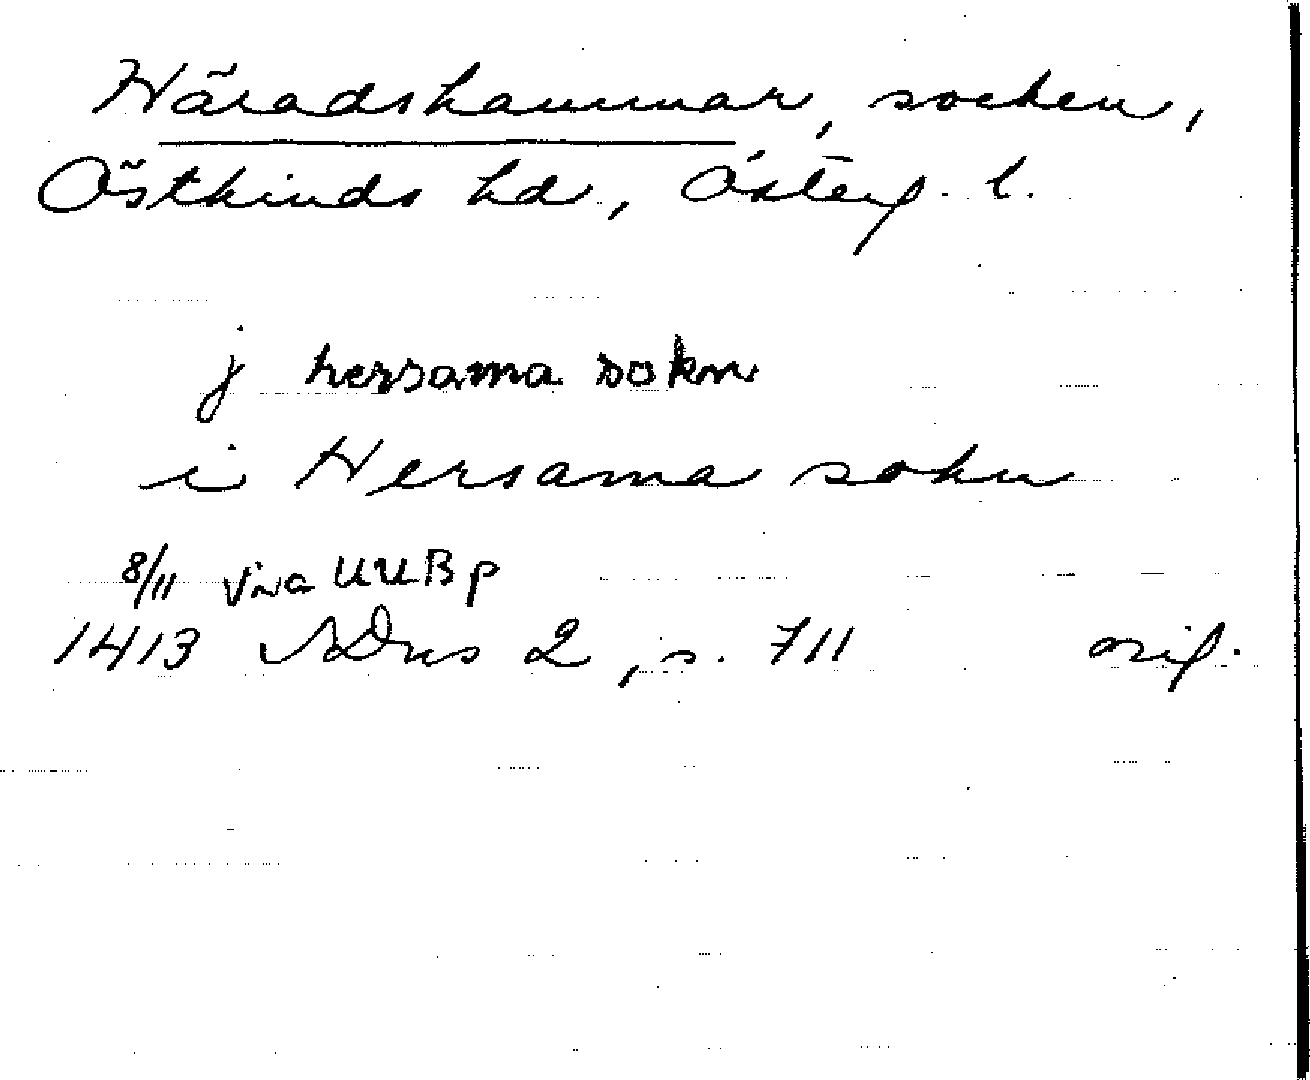 Häradshammar, socken,
Östkinds hd, Österg. l.
j hersama sokn
i Hersama sokn
8/11 Viva UUB p
1413 SDns 2, s. 711 orig.